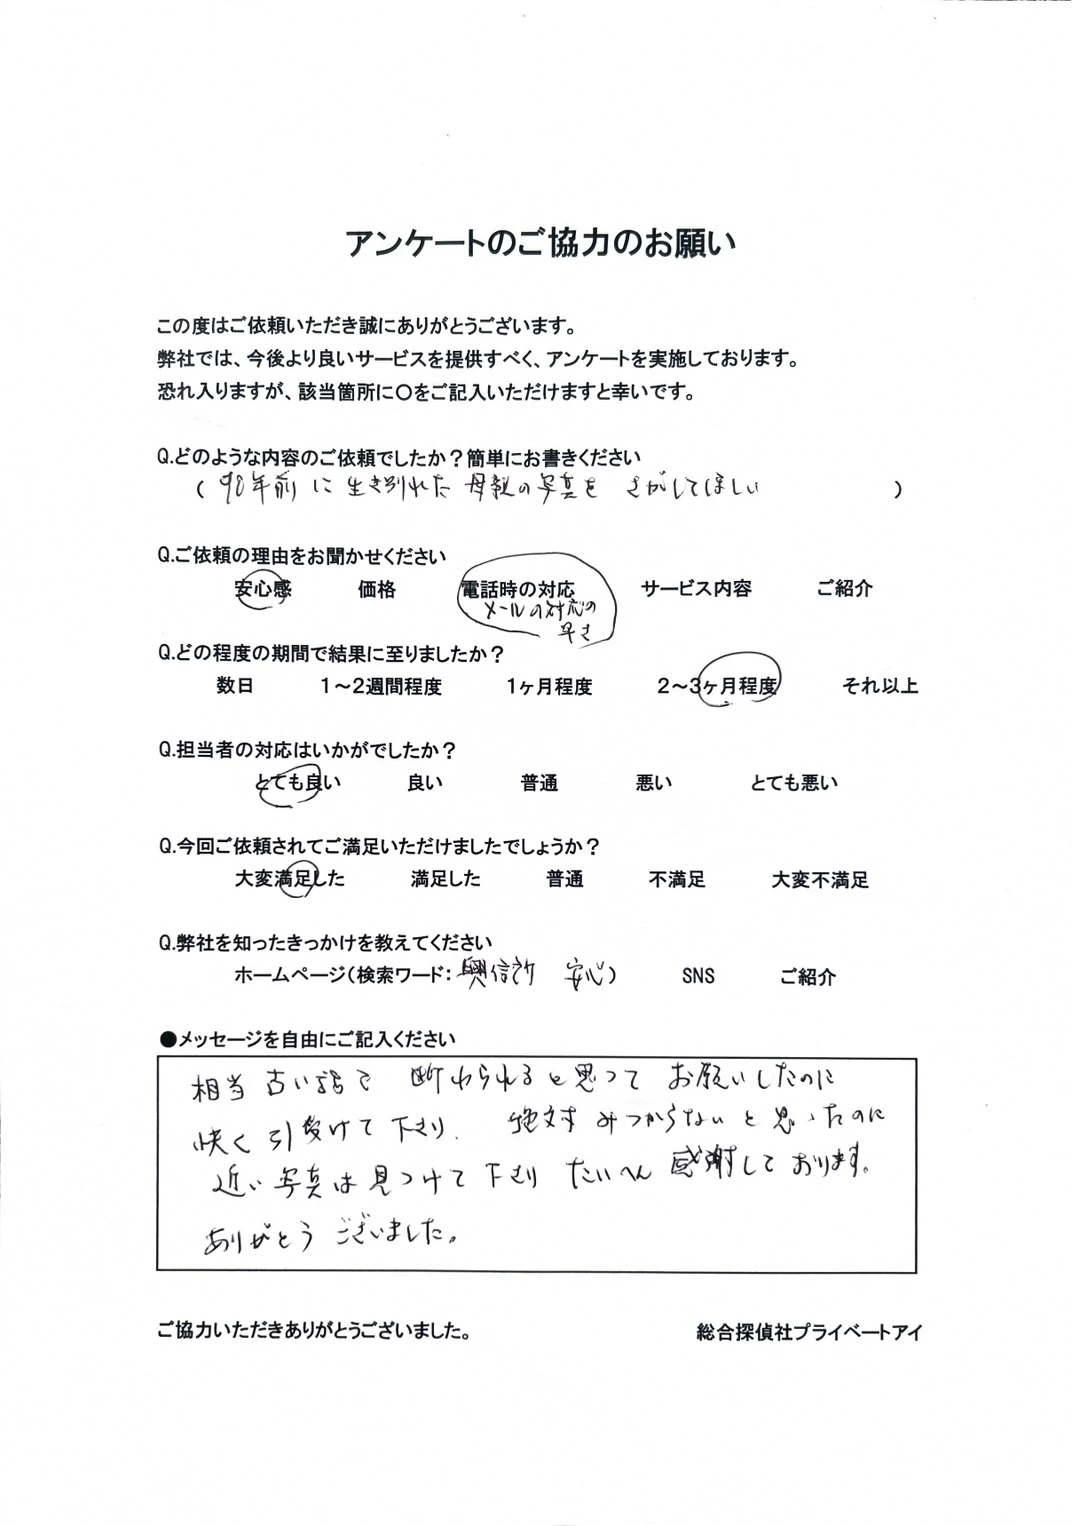 アンケートのご協力のお願い
この度はご依頼いただき誠にありがとうございます。
弊社では、今後より良いサービスを提供すべく、アンケートを実施しております。
恐れ入りますが、該当箇所に○をご記入いただけますと幸いです。
Q.どのような内容のご依頼でしたか？簡単にお書きください
（90年前に生き別れた母親の写真をさがしてほしい）
Q.ご依頼の理由をお聞かせください
安心感 価格 電話時の対応 サービス内容 ご紹介
メールの対応の
早さ
Q.どの程度の期間で結果に至りましたか？
数日 1～2週間程度 1ヶ月程度 2～3ヶ月程度 それ以上
Q.担当者の対応はいかがでしたか？
とても良い 良い 普通 悪い とても悪い
Q.今回ご依頼されてご満足いただけましたでしょうか？
大変満足した 満足した 普通 不満足 大変不満足
Q.弊社を知ったきっかけを教えてください
ホームページ（検索ワード：興信所 安心） SNS ご紹介
●メッセージを自由にご記入ください
相当古い話で 断わられると思って お願いしたのに
快く引受けて下さり、絶対みつからないと思ったのに
近い写真は見つけて下さり たいへん感謝しております。
ありがとうございました。
ご協力いただきありがとうございました。 総合探偵社プライベートアイ